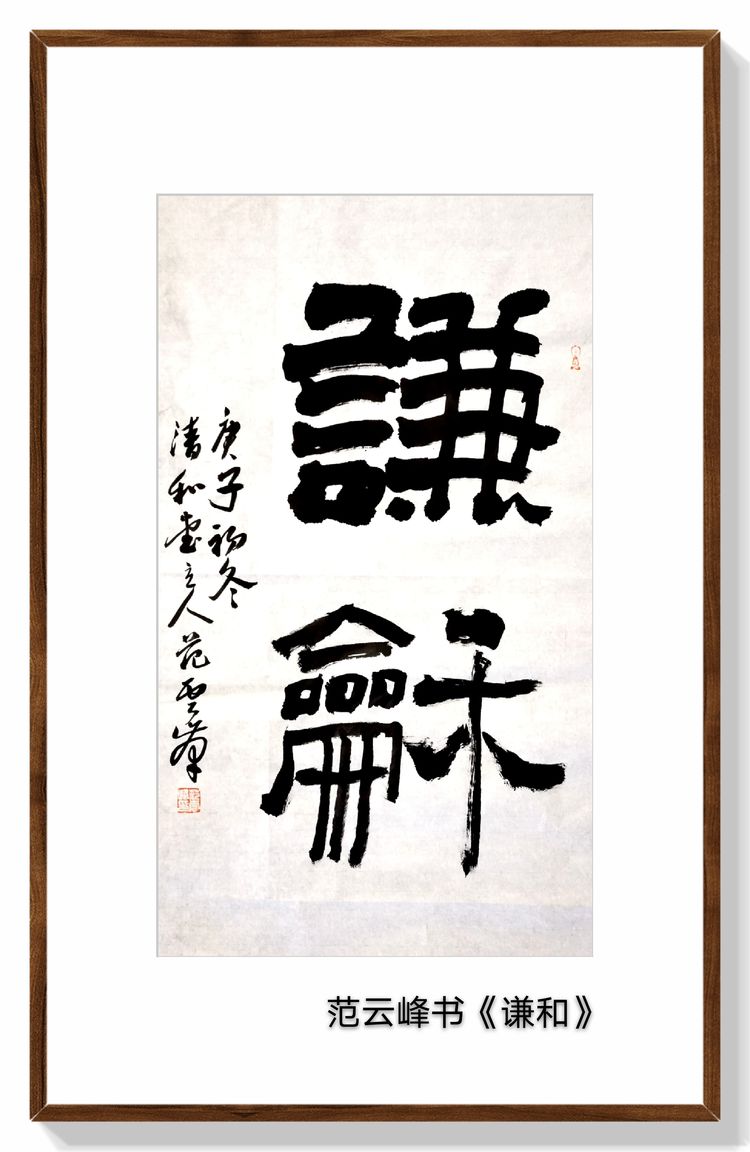 謙
龢
庚子初冬
清和堂主人范云峰
范云峰书《谦和》